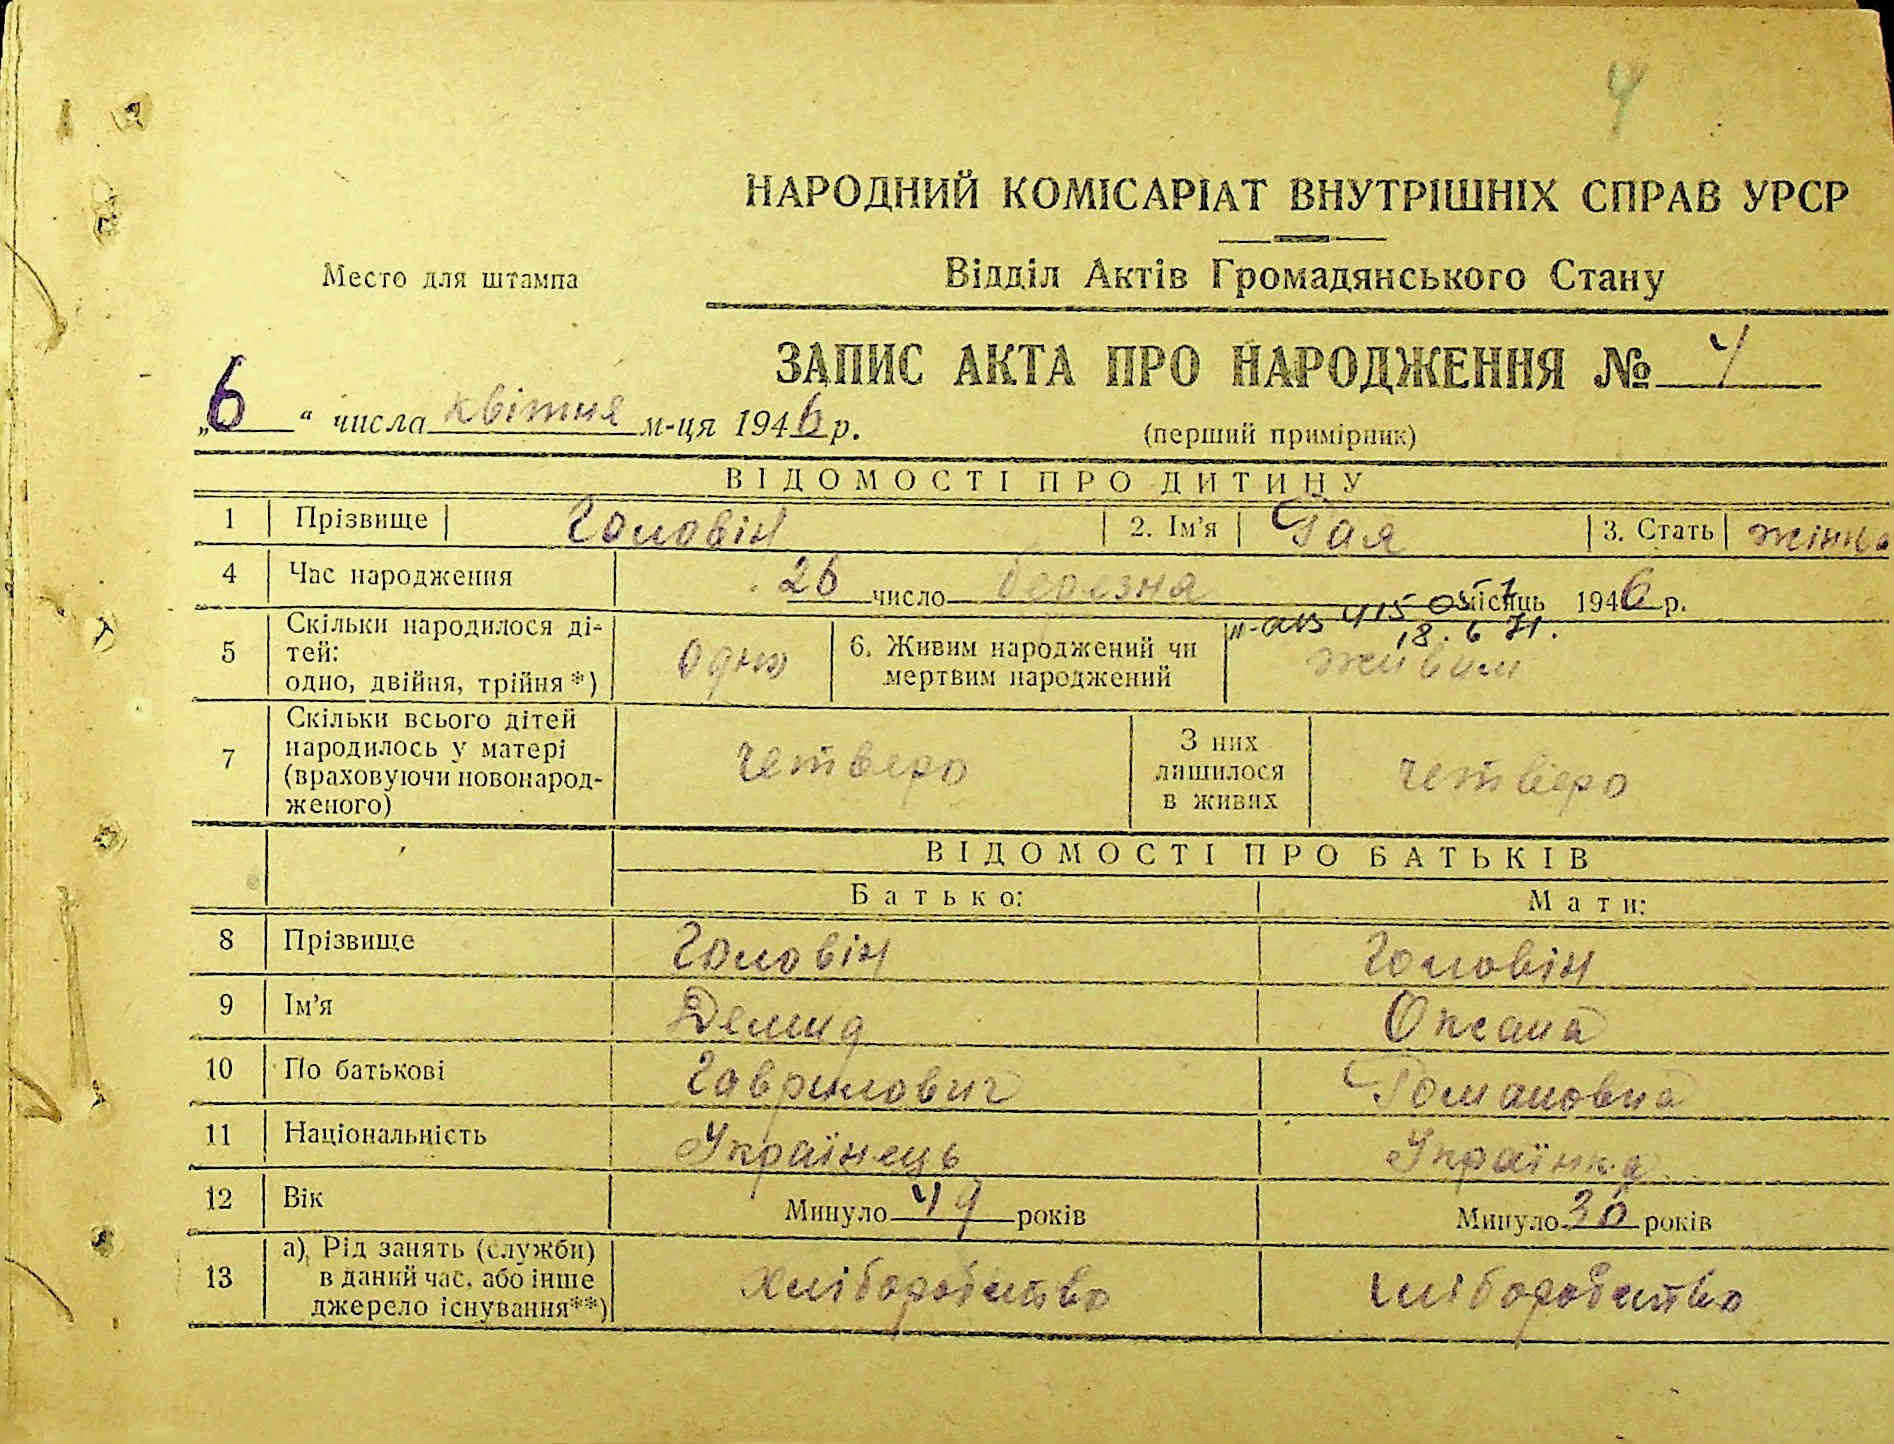 4
НАРОДНИЙ КОМІСАРІАТ ВНУТРІШНІХ СПРАВ УРСР
Место для штампа
Відділ Актів Громадянського Стану
ЗАПИС АКТА ПРО НАРОДЖЕННЯ № 4
„6“ числа квітня м-ця 1946 р.
(перший примірник)
ВІДОМОСТІ ПРО ДИТИНУ
1 Прізвище Головін 2. Ім'я Рая 3. Стать жіноч
4 Час народження 26 число березня місяць 1946 р.
415
18. 6 71.
5 Скільки народилося ді-
тей:
одно, двійня, трійня *) одно 6. Живим народжений чи
мертвим народжений живим
7 Скільки всього дітей
народилось у матері
(враховуючи новонарод-
женого) четверо З них
лишилося
в живих четверо
ВІДОМОСТІ ПРО БАТЬКІВ
Батько: Мати:
8 Прізвище Головін Головін
9 Ім'я Демид Оксана
10 По батькові Гаврилович Романовна
11 Національність Українець Українка
12 Вік Минуло 49 років Минуло 30 років
13 а) Рід занять (служби)
в даний час, або інше
джерело існування**) хліборобство хліборобство